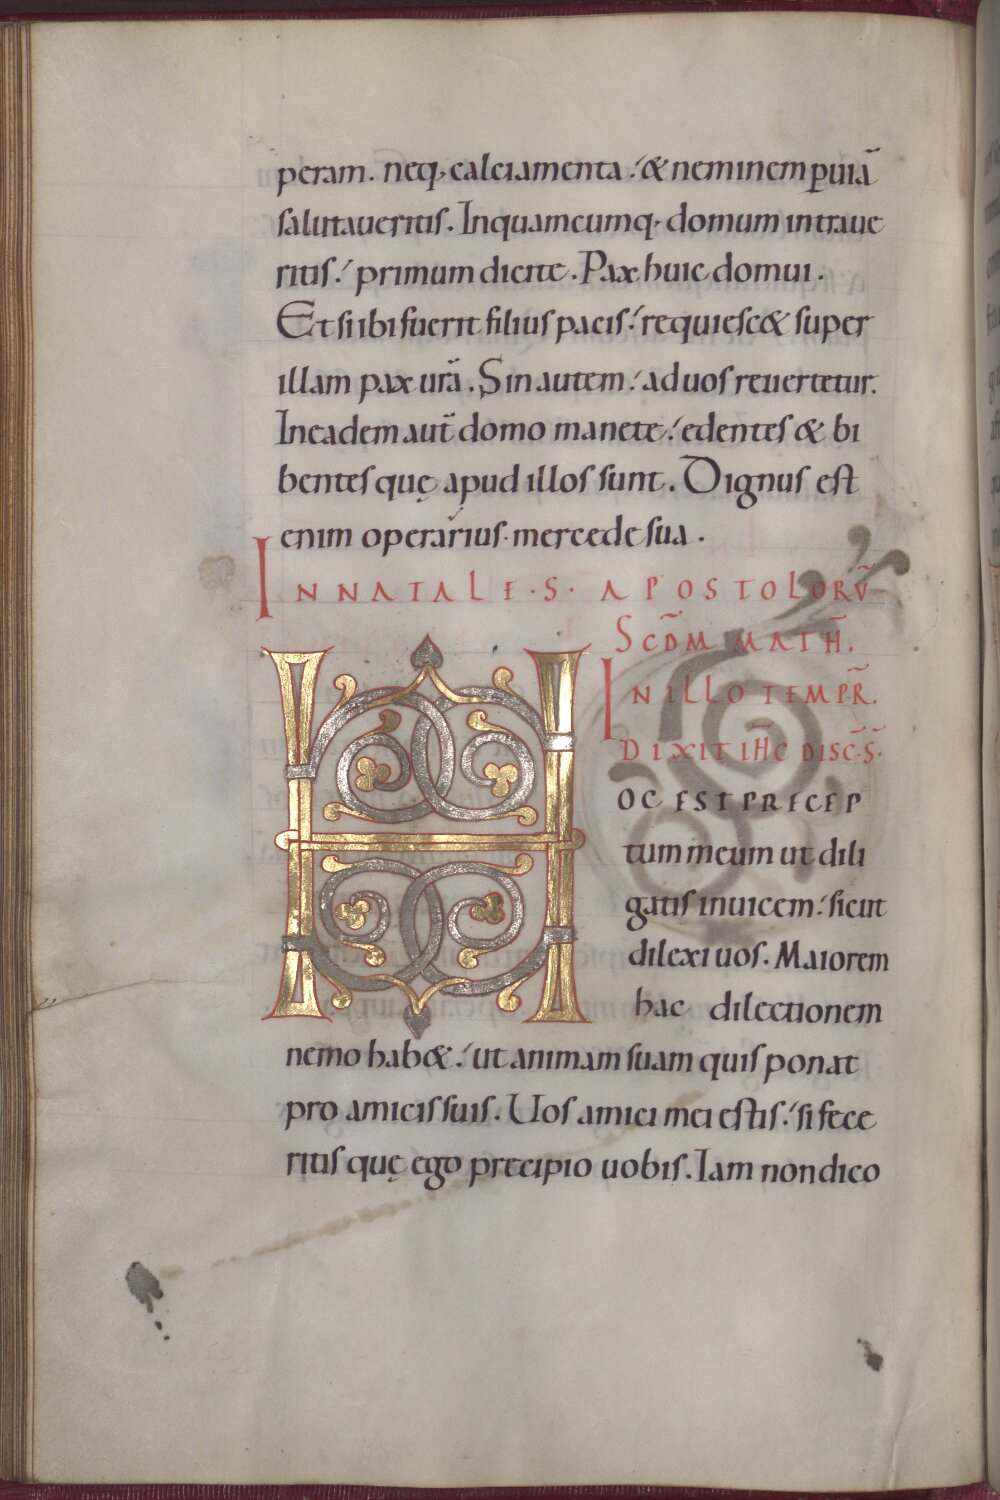 peram. neq; calciamenta :́ & neminem p̱ uiā
salutaueritis. Inquamcumq; domum intraue
ritis :́ primum dicite. Pax huic domui.
Et si ibi fuerit filius pacis :́ requiesc& super
illam pax ur̄a. Sin autem :́ ad uos reuertetur.
In eadem aut̄ domo manete :́ edentes & bi
bentes quę apud illos sunt. Dignus est
enim operarius mercede sua.
IN NATALE S. APOSTOLORV̄
SCD̄M MATH̄.
IN ILLO TEMPR̄.
DIXIT IH̄C DISC̄S̄.
HOC EST PRECEP
tum meum ut dili
gatis inuicem :́ sicut
dilexi uos. Maiorem
hac dilectionem
nemo hab& :́ ut animam suam quis ponat
pro amicis suis. Uos amici mei estis :́ si fece
ritis quę ego precipio uobis. Iam non dico